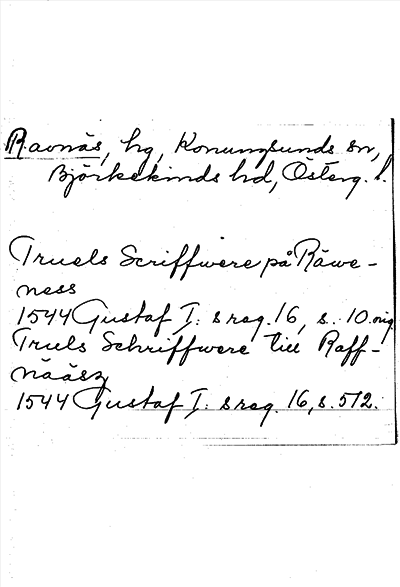 Ravnäs, hg, Konungsunds sn,
Björkekinds hd, Österg. l.
Truels Scriffwere på Räwe-
ness
1544 Gustaf I: s reg. 16, s. 10. orig
Truls Schriffwere till Raff-
nääsz
1544 Gustaf I: s reg. 16, s. 572.